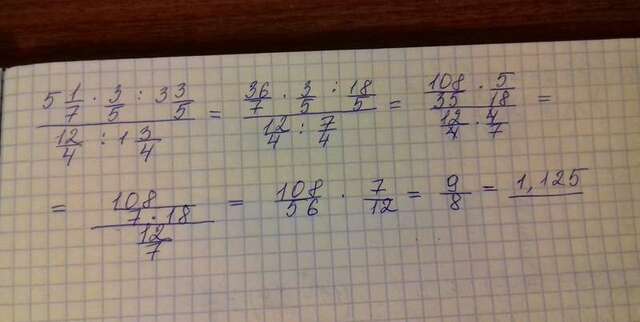 5 1/7 · 3/5 : 3 3/5 / 12/4 : 1 3/4 = 36/7 · 3/5 : 18/5 / 12/4 : 7/4 = 108/35 · 5/18 / 12/4 · 4/7 =
= 108/7·18 / 12/7 = 108/56 · 7/12 = 9/8 = 1,125